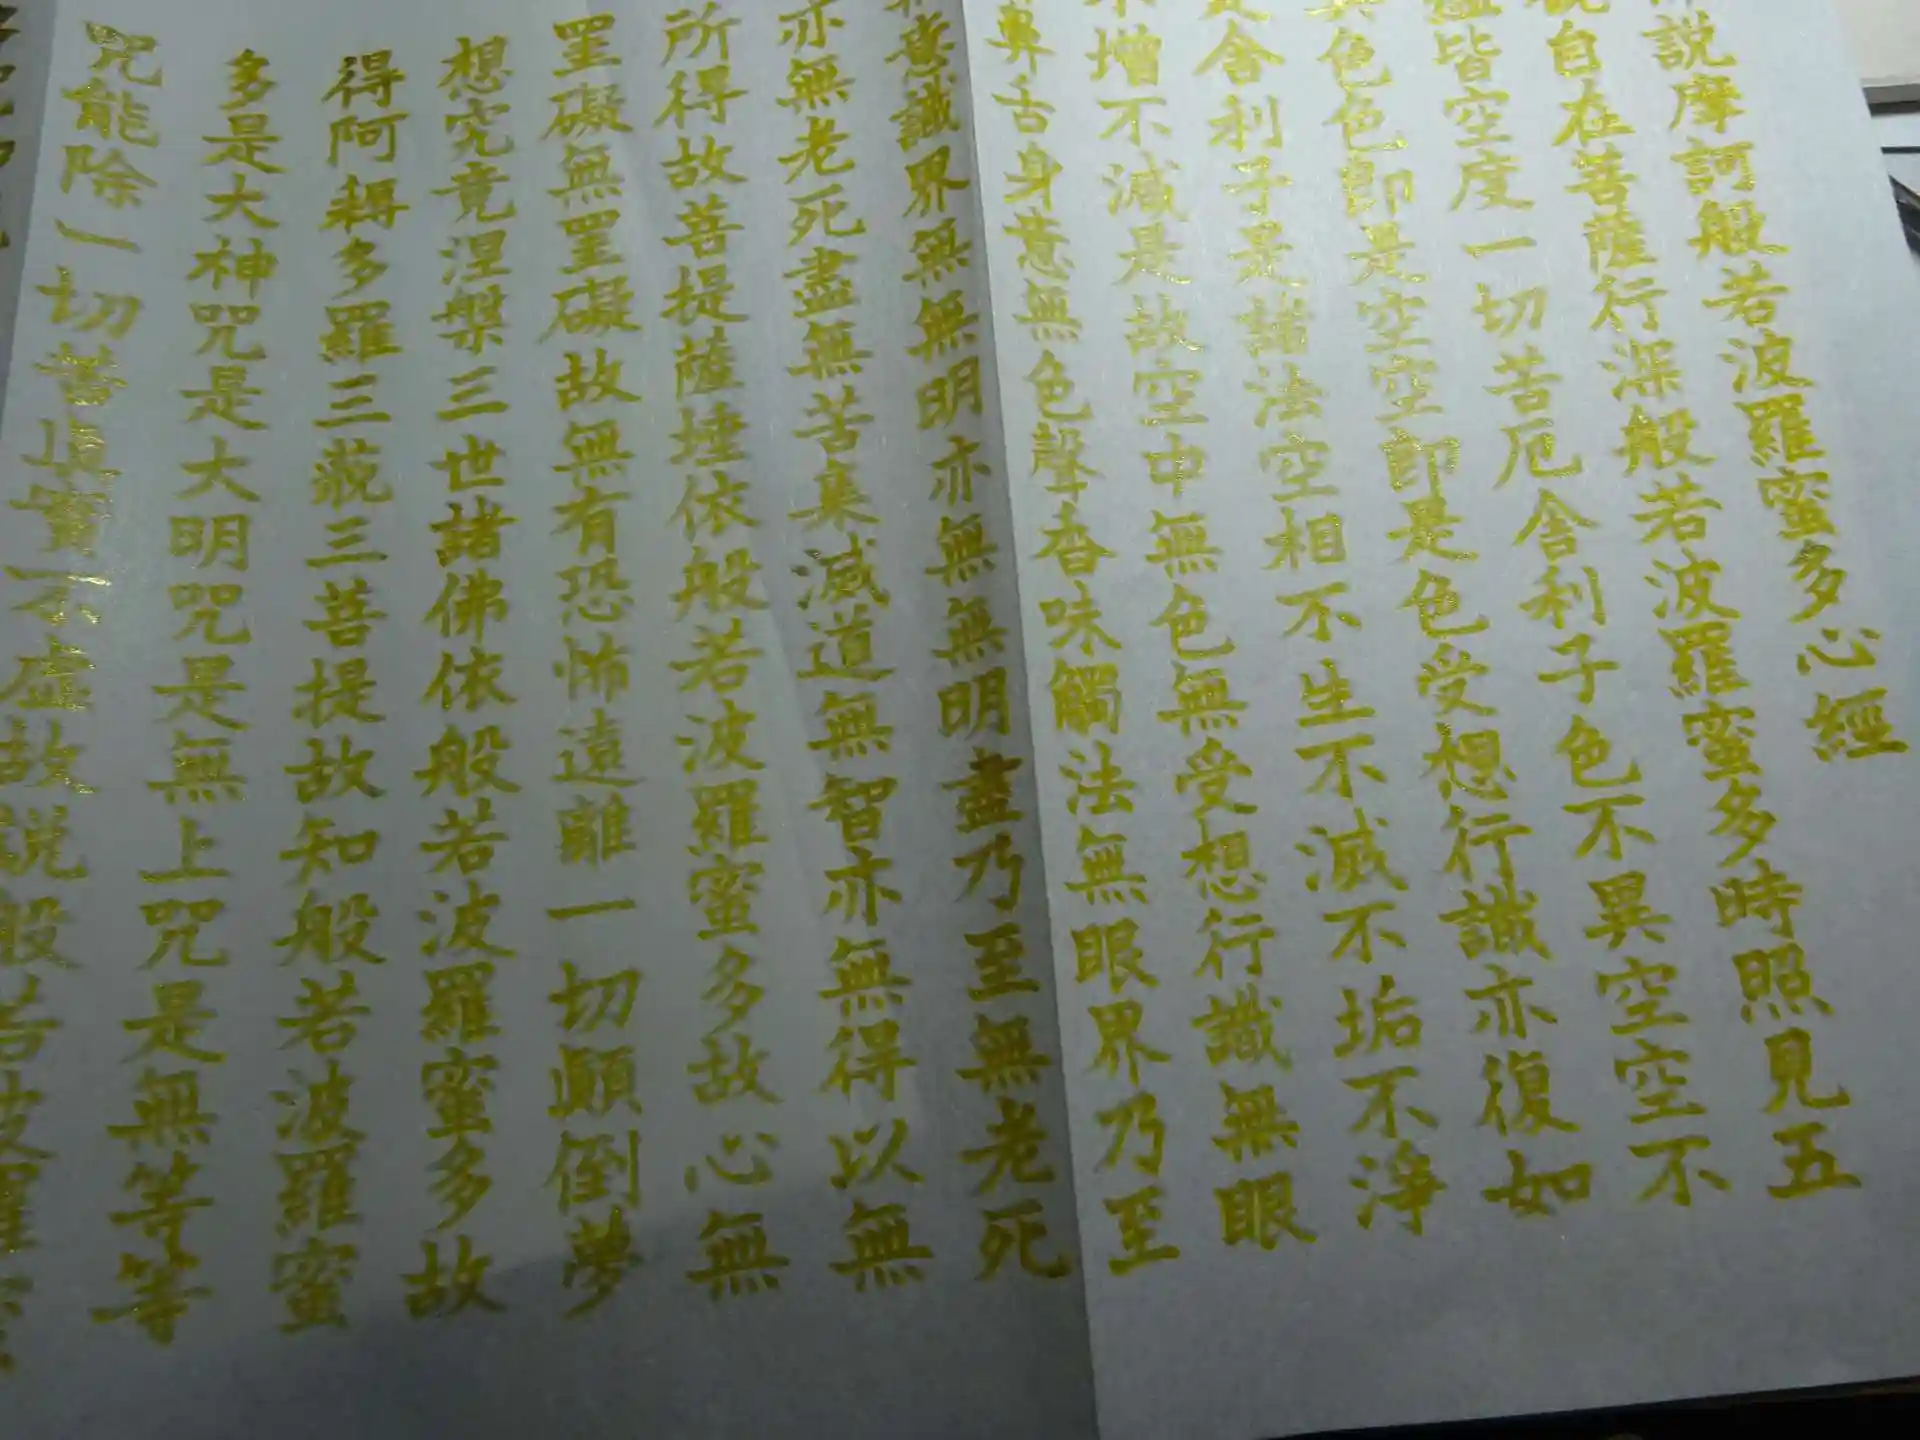 説摩訶般若波羅蜜多心經
自在菩薩行深般若波羅蜜多時照見五
蘊皆空度一切苦厄舎利子色不異空空不
異色色即是空空即是色受想行識亦復如
是舎利子是諸法空相不生不滅不垢不淨
不増不減是故空中無色無受想行識無眼
鼻舌身意無色聲香味觸法無眼界乃至
無意識界無無明亦無無明盡乃至無老死
亦無老死盡無苦集滅道無智亦無得以無
所得故菩提薩埵依般若波羅蜜多故心無
罣礙無罣礙故無有恐怖遠離一切顚倒夢
想究竟涅槃三世諸佛依般若波羅蜜多故
得阿耨多羅三藐三菩提故知般若波羅蜜
多是大神咒是大明咒是無上咒是無等等
咒能除一切苦眞實不虚故説般若波羅